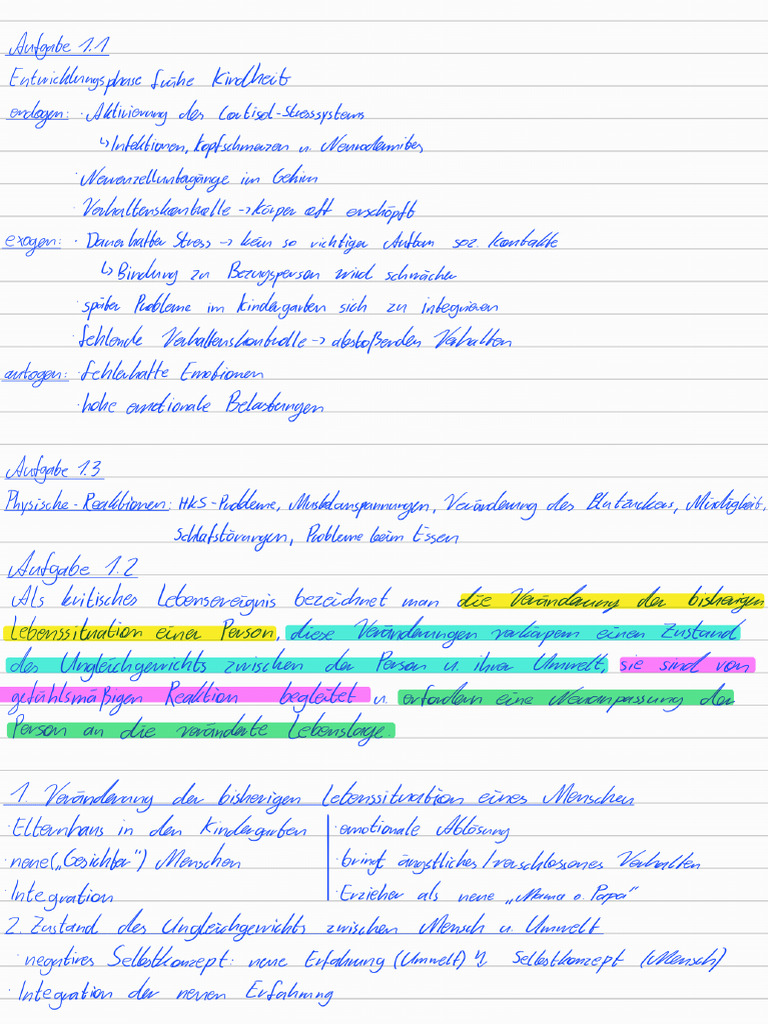 Aufgabe 1.1
Entwicklungsphase frühe Kindheit
endogen: · Aktivierung des Cortisol-Stresssystems
↳ Infektionen, Kopfschmerzen u. Neurodermites
· Neuronzelluntergänge im Gehirn
· Verhaltenskontrolle → Körper oft erschöpft
exogen: · Dauerhafter Stress → kein so richtiger Aufbau soz. Kontakte
↳ Bindung zu Bezugsperson wird schwächer
· später Probleme im Kindergarten sich zu integrieren
· fehlende Verhaltenskontrolle → abstoßenden Verhalten
autogen: · fehlerhafte Emotionen
· hohe emotionale Belastungen
Aufgabe 1.3
Physische-Reaktionen: HKS-Probleme, Muskelanspannungen, Veränderung des Blutzuckers, Müdigkeit,
Schlafstörungen, Probleme beim Essen
Aufgabe 1.2
Als kritisches Lebensereignis bezeichnet man die Veränderung der bisherigen
Lebenssituation einer Person, diese Veränderungen verkörpern einen Zustand
des Ungleichgewichts zwischen der Person u. ihrer Umwelt, sie sind von
gefühlsmäßigen Reaktion begleitet u. erfordern eine Neuanpassung der
Person an die veränderte Lebenslage.
1. Veränderung der bisherigen Lebenssituation eines Menschen
· Elternhaus in den Kindergarten
· neue („Gesichter") Menschen
· Integration
· emotionale Ablösung
· bringt ängstliches/verschlossenes Verhalten
· Erzieher als neue „Mama o. Papa"
2. Zustand des Ungleichgewichts zwischen Mensch u. Umwelt
· negatives Selbstkonzept: neue Erfahrung (Umwelt) ↯ Selbstkonzept (Mensch)
· Integration der neuen Erfahrung